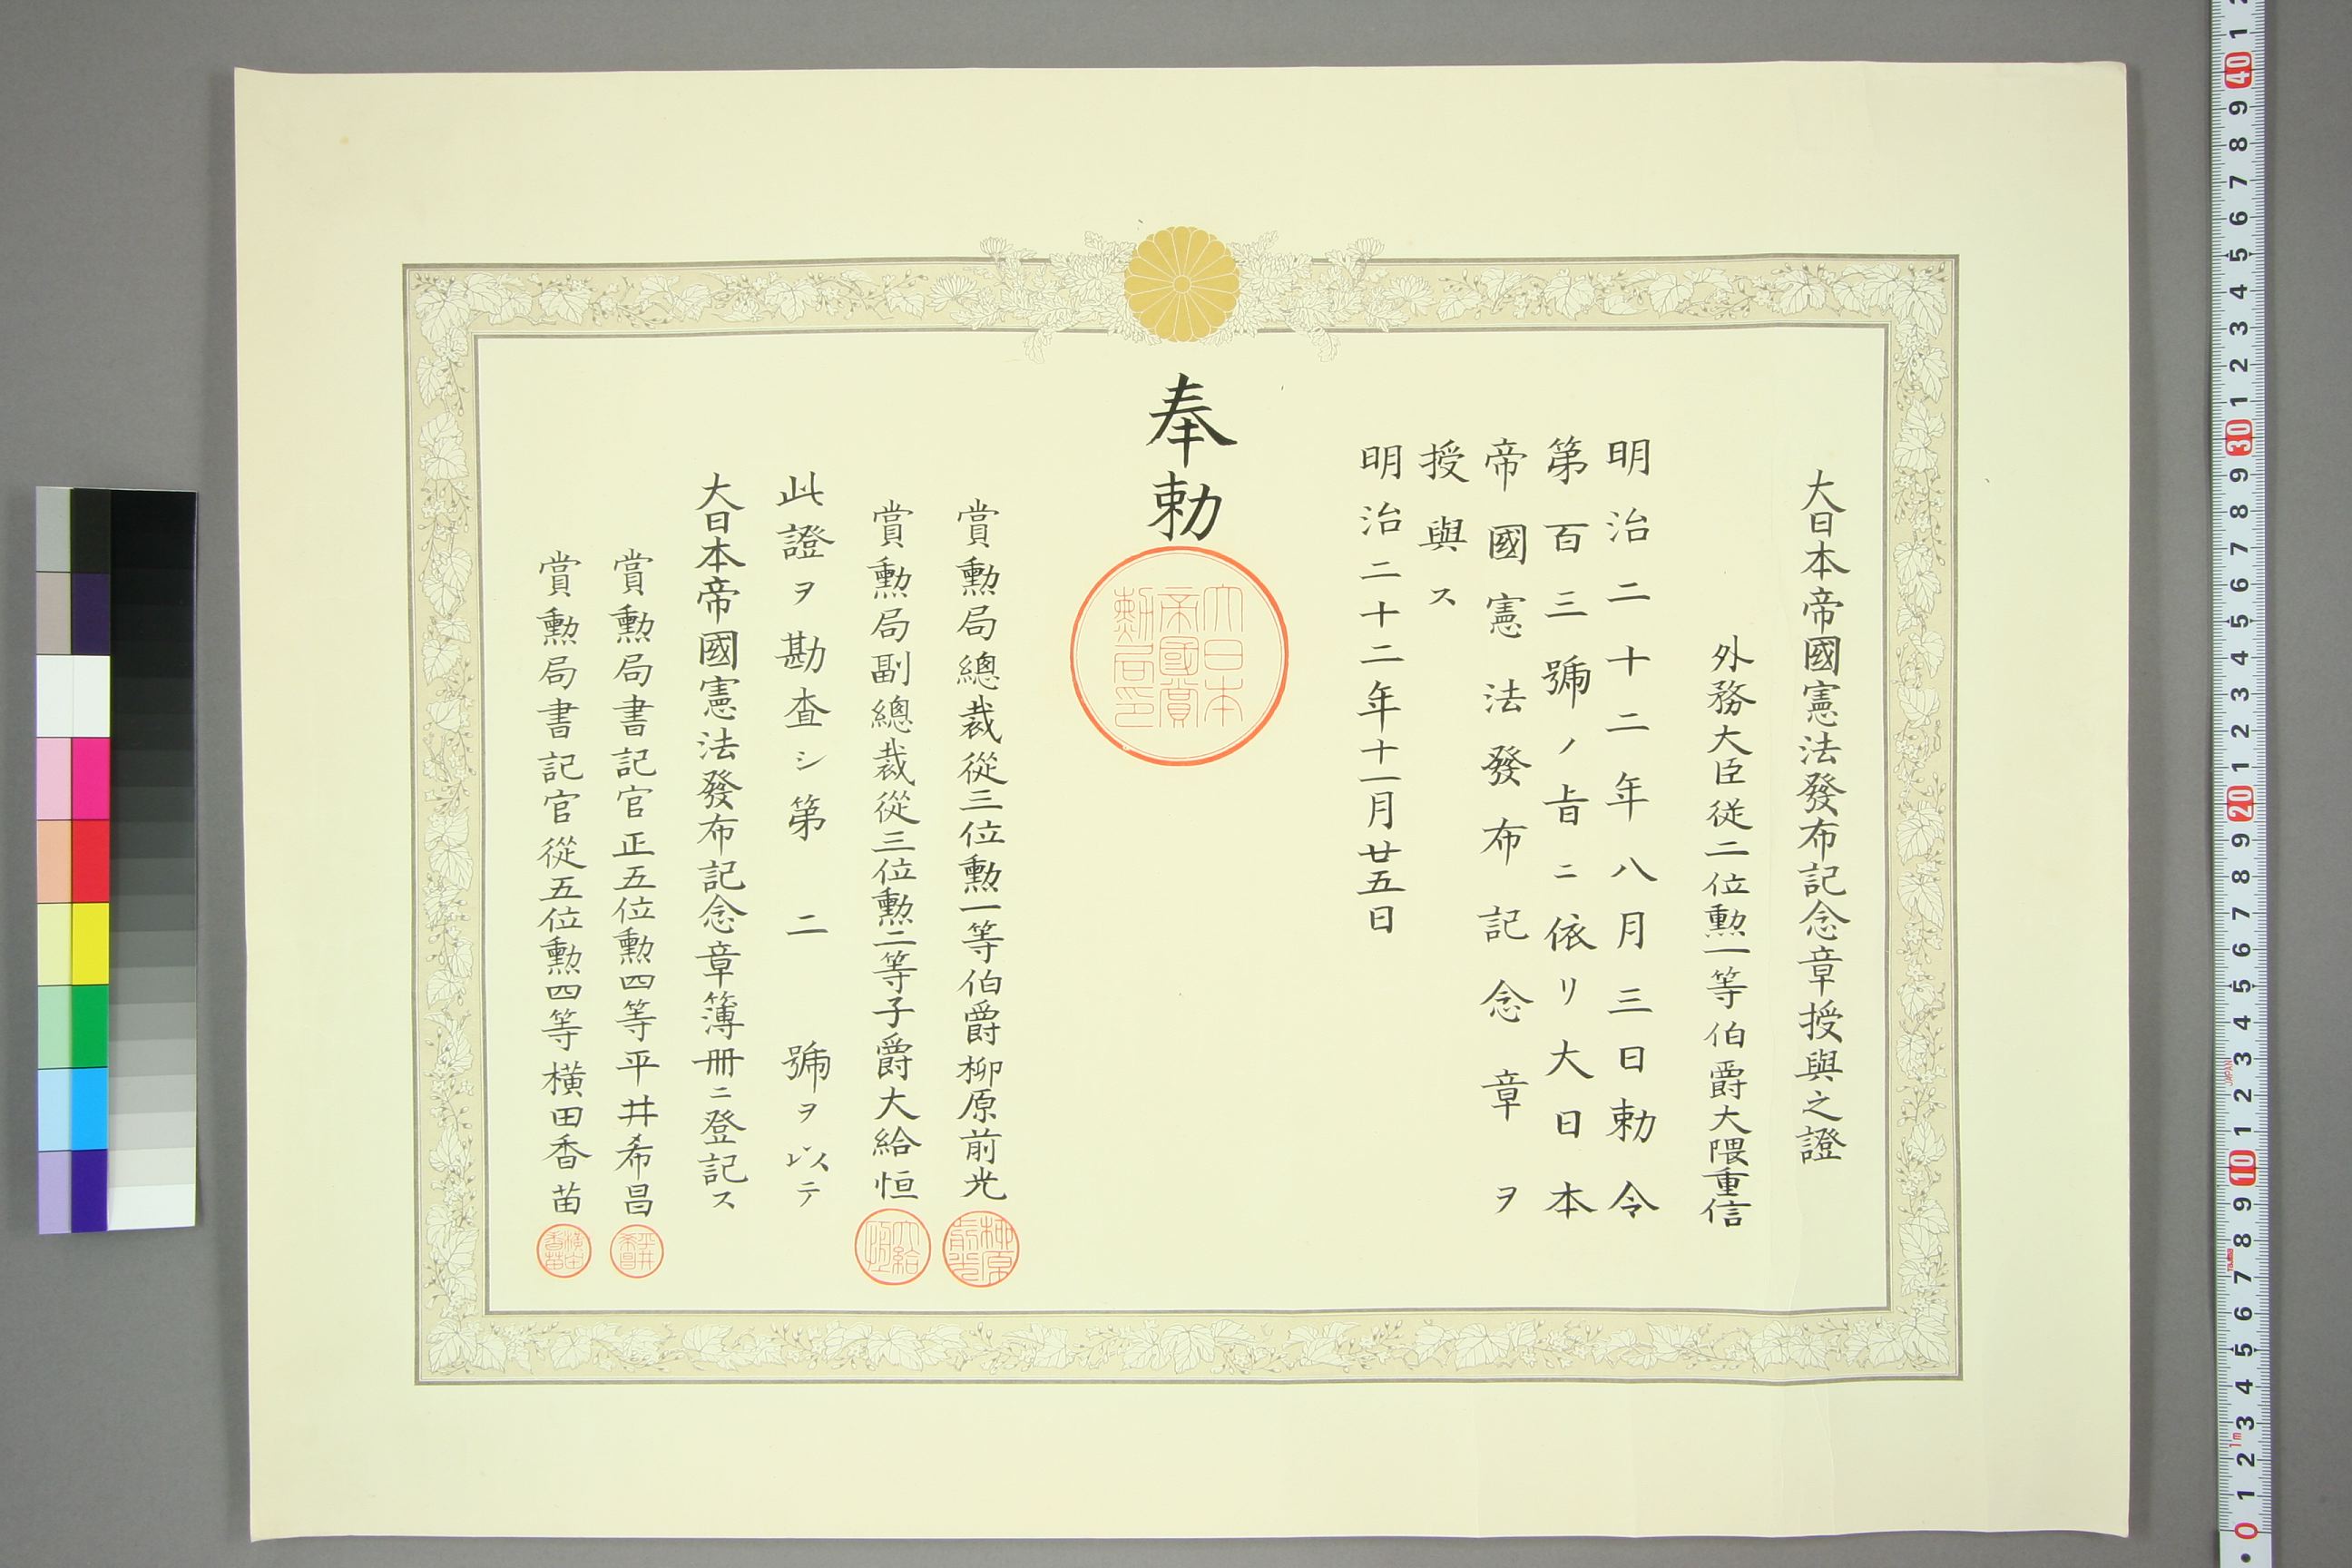 大日本帝國憲法發布記念章授與之證
外務大臣從二位勲一等伯爵大隈重信
明治二十二年八月三日勅令
第百三號ノ旨ニ依リ大日本
帝國憲法發布記念章ヲ
授與ス
明治二十二年十一月廿五日
奉勅
大日本
帝國賞
勲局印
賞勲局總裁從三位勲一等伯爵柳原前光
柳原
前光
賞勲局副總裁從三位勲二等子爵大給恒
大給
恒
此證ヲ勘査シ第二號ヲ以テ
大日本帝國憲法發布記念章簿冊ニ登記ス
賞勲局書記官正五位勲四等平井希昌
平井
希昌
賞勲局書記官從五位勲四等横田香苗
横田
香苗